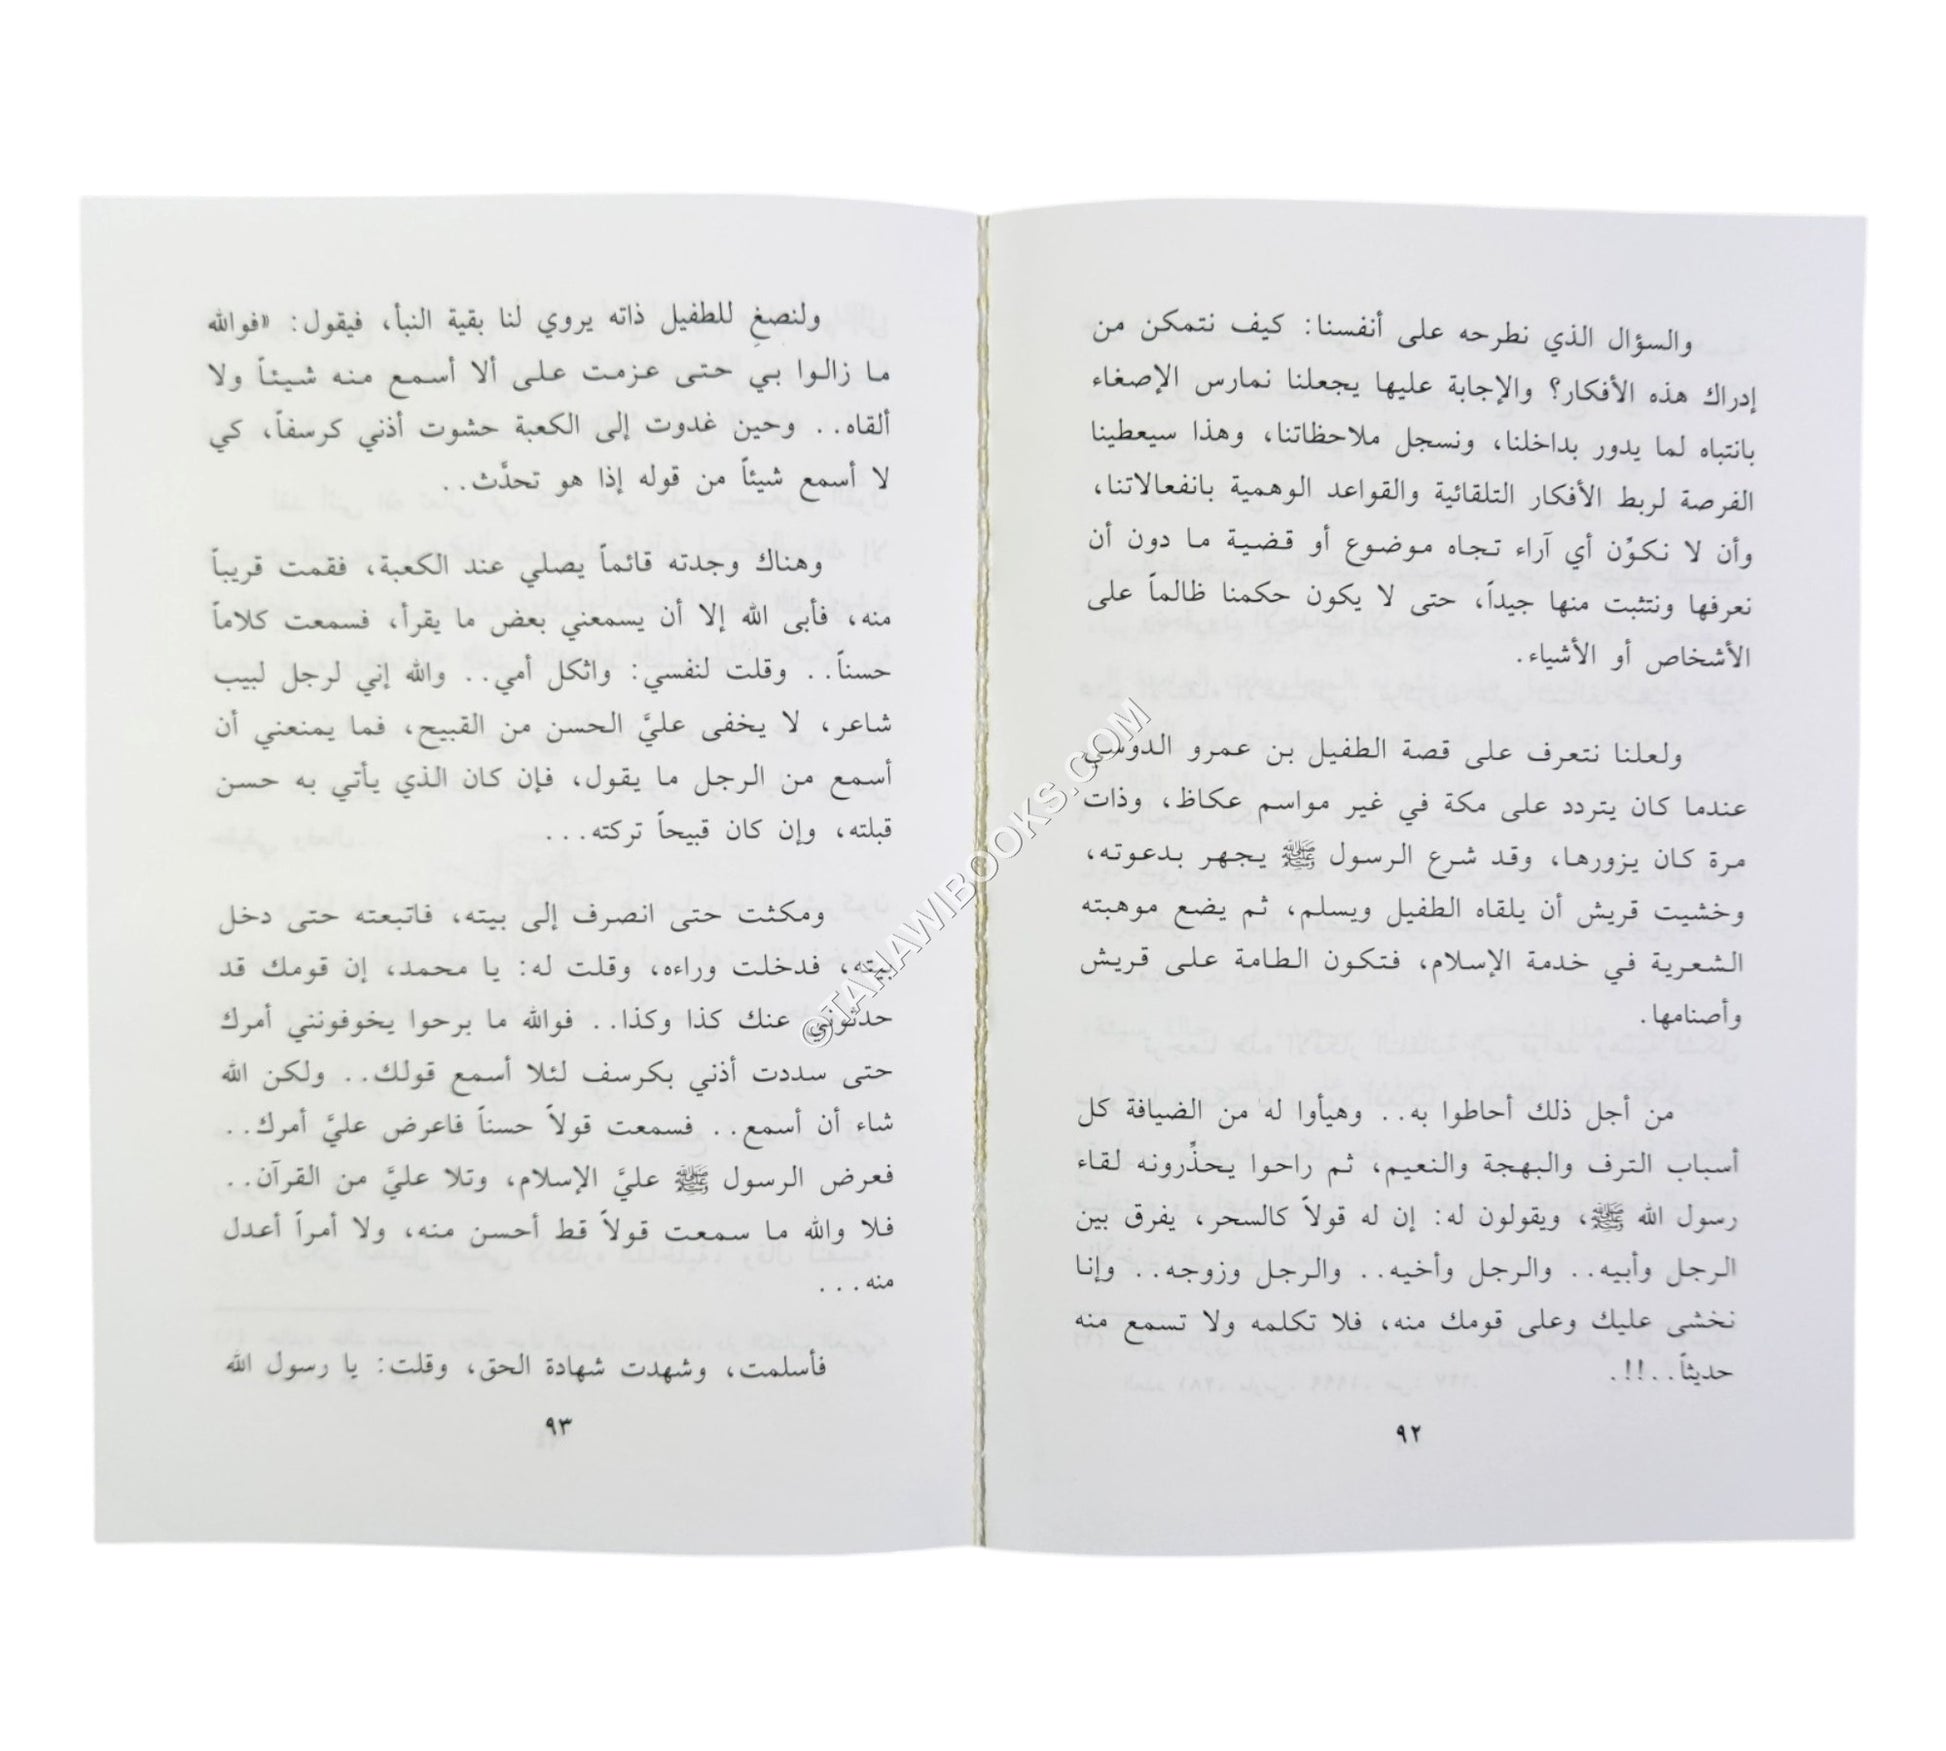 والسؤال الذي نطرحه على أنفسنا: كيف نتمكن من
إدراك هذه الأفكار؟ والإجابة عليها يجعلنا نمارس الإصغاء
بانتباه لما يدور بداخلنا، ونسجل ملاحظاتنا، وهذا سيعطينا
الفرصة لربط الأفكار التلقائية والقواعد الوهمية بانفعالاتنا،
وأن لا نكوِّن أي آراء تجاه موضوع أو قضية ما دون أن
نعرفها ونتثبت منها جيداً، حتى لا يكون حكمنا ظالماً على
الأشخاص أو الأشياء.
ولعلنا نتعرف على قصة الطفيل بن عمرو الدوسي
عندما كان يتردد على مكة في غير مواسم عكاظ، وذات
مرة كان يزورها، وقد شرع الرسول ﷺ يجهر بدعوته،
وخشيت قريش أن يلقاه الطفيل ويسلم، ثم يضع موهبته
الشعرية في خدمة الإسلام، فتكون الطامة على قريش
وأصنامها.
من أجل ذلك أحاطوا به.. وهيأوا له من الضيافة كل
أسباب الترف والبهجة والنعيم، ثم راحوا يحذِّرونه لقاء
رسول الله ﷺ، ويقولون له: إن له قولاً كالسحر، يفرق بين
الرجل وأبيه.. والرجل وأخيه.. والرجل وزوجه.. وإنا
نخشى عليك وعلى قومك منه، فلا تكلمه ولا تسمع منه
حديثاً..!!.
٩٢
ولنصغِ للطفيل ذاته يروي لنا بقية النبأ، فيقول: «فوالله
ما زالوا بي حتى عزمت على ألا أسمع منه شيئاً ولا
ألقاه.. وحين غدوت إلى الكعبة حشوت أذني كرسفاً، كي
لا أسمع شيئاً من قوله إذا هو تحدَّث..
وهناك وجدته قائماً يصلي عند الكعبة، فقمت قريباً
منه، فأبى الله إلا أن يسمعني بعض ما يقرأ، فسمعت كلاماً
حسناً.. وقلت لنفسي: واثكل أمي.. والله إني لرجل لبيب
شاعر، لا يخفى عليَّ الحسن من القبيح، فما يمنعني أن
أسمع من الرجل ما يقول، فإن كان الذي يأتي به حسن
قبلته، وإن كان قبيحاً تركته...
ومكثت حتى انصرف إلى بيته، فاتبعته حتى دخل
بيته، فدخلت وراءه، وقلت له: يا محمد، إن قومك قد
حدثوني عنك كذا وكذا.. فوالله ما برحوا يخوفونني أمرك
حتى سددت أذني بكرسف لئلا أسمع قولك.. ولكن الله
شاء أن أسمع.. فسمعت قولاً حسناً فاعرض عليَّ أمرك..
فعرض الرسول ﷺ عليَّ الإسلام، وتلا عليَّ من القرآن..
فلا والله ما سمعت قولاً قط أحسن منه، ولا أمراً أعدل
منه...
فأسلمت، وشهدت شهادة الحق، وقلت: يا رسول الله
٩٣
©TAHAWIBOOKS.COM